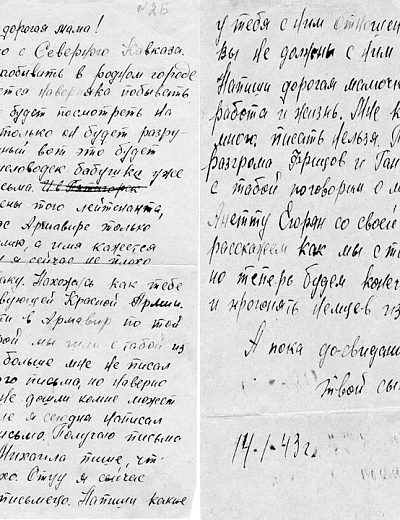 №26
дорогая мама!
о с Северного Кавказа.
побывать в родном городе
ется наверняка побывать
будет посмотреть на
только он будет разру-
ный вот это будет
словодск бабушке уже
сьма. И в Пятигорск
ены того лейтенанта,
Армавире только
лию, а имя кажется
я сейчас не плохо
аку. Нахожусь как тебе
вующей Красной Армии.
ти в Армавир по той
рой мы шли с табой из
больше мне не писал
ого письма, но наверно
не дошли комне может
я сегодня написал
исьмо. Получаю письма
Михаила пише, чт-
хо. Отцу я сейчас
письмецо. Напиши какие
у тебя с ним отношени
вы не должны с ним
Напиши дорогая мамочк
работа и жизнь. Мне к
мною писать нельзя. П
разгрома Фрицов и Га
с табой поговорим о м
Анетту Егорян со своей
расскажем как мы с т
но теперь будем
и прогонять немцев из
А пока до-свидан
твой сы
14-1-43г.